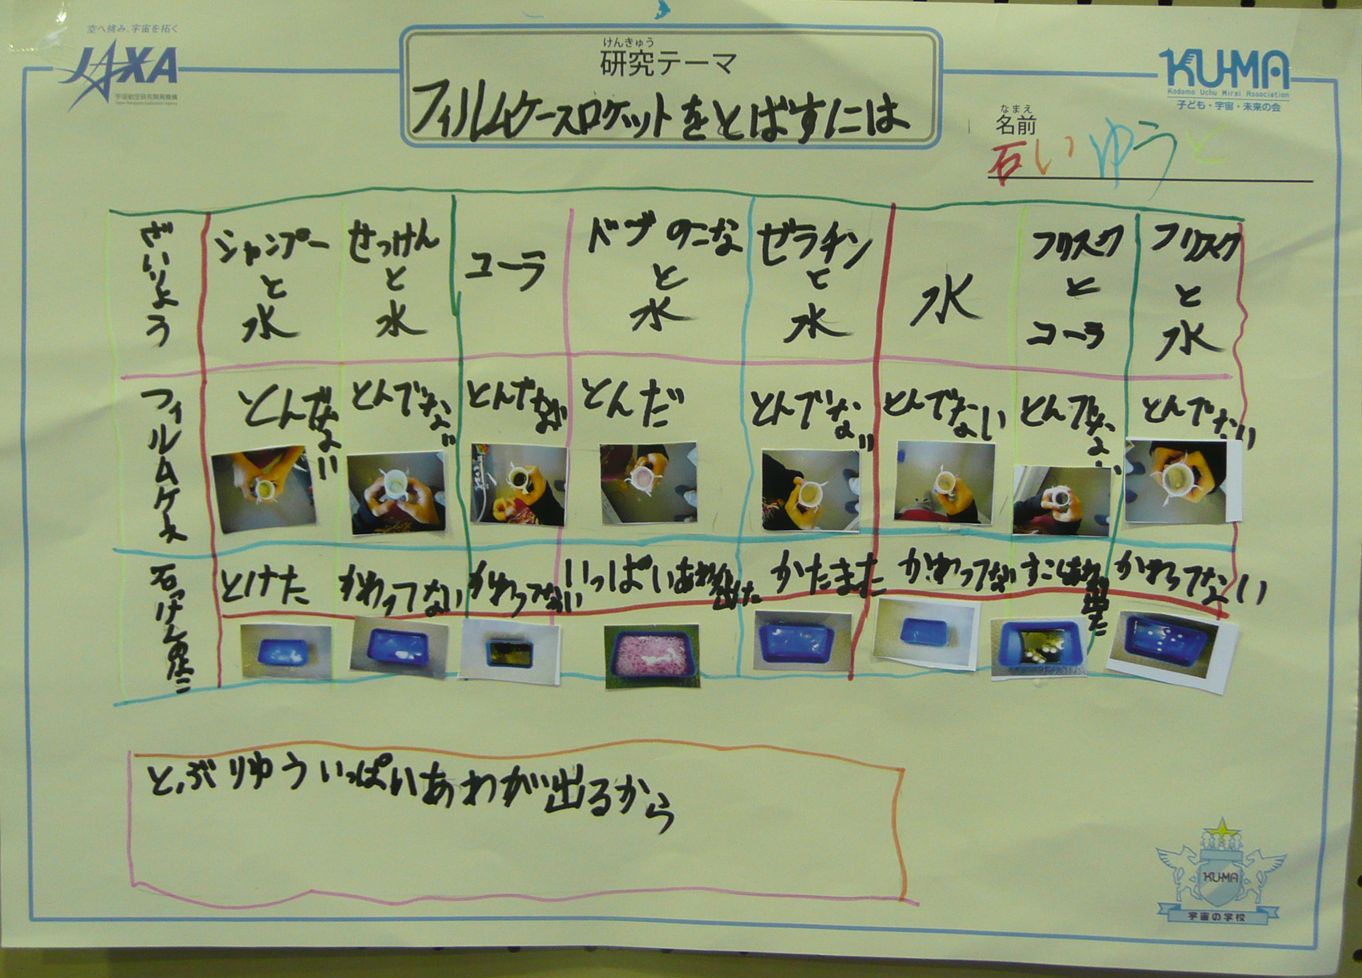 空へ挑み、宇宙を拓く
JAXA
宇宙航空研究開発機構
Japan Aerospace Exploration Agency
けんきゅう
研究テーマ
フィルムケースロケットをとばすには
KU-MA
Kodomo Uchu Mirai Association
子ども・宇宙・未来の会
なまえ
名前
石いゆうと
ざいりょう
シャンプーと水
せっけんと水
コーラ
バブのこなと水
ゼラチンと水
水
フリスクとコーラ
フリスクと水
フィルムケース
とんでない
とんでない
とんでない
とんだ
とんでない
とんでない
とんでない
とんでない
石けん
とけた
かわってない
かわってない
いっぱいあわ出た
かたまた
かわってない
すこしあわ出た
かわってない
とぶりゆういっぱいあわが出るから
KU-MA
宇宙の学校